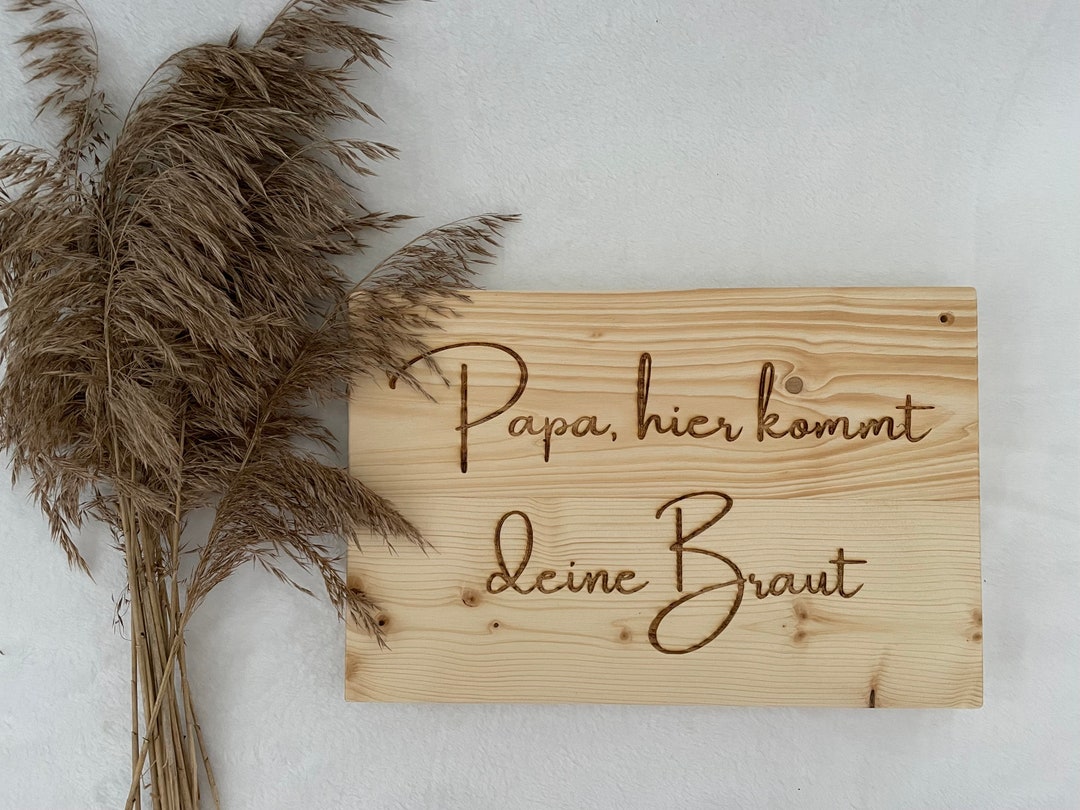 Papa, hier kommt
deine Braut